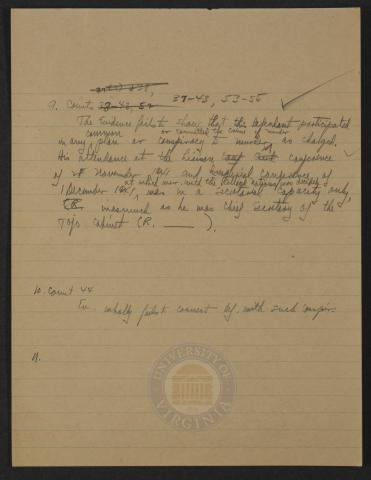 9. Counts 37-43, 53-55
The Evidence fails to show that this Defendant participated
in any common plan or conspiracy to murder or committed the crime of murder as charged.
His attendance at the Liaison conference
of November 1941 and Imperial Conference of
1 December 1941, at which war with the United Nations was decided, was in a secretarial capacity only,
inasmuch as he was Chief Secretary of the
Tojo Cabinet (R. ____ ).
10. Count 44
Ev. wholly fails to connect Def. with such conspir.
11.
UNIVERSITY OF
VIRGINIA